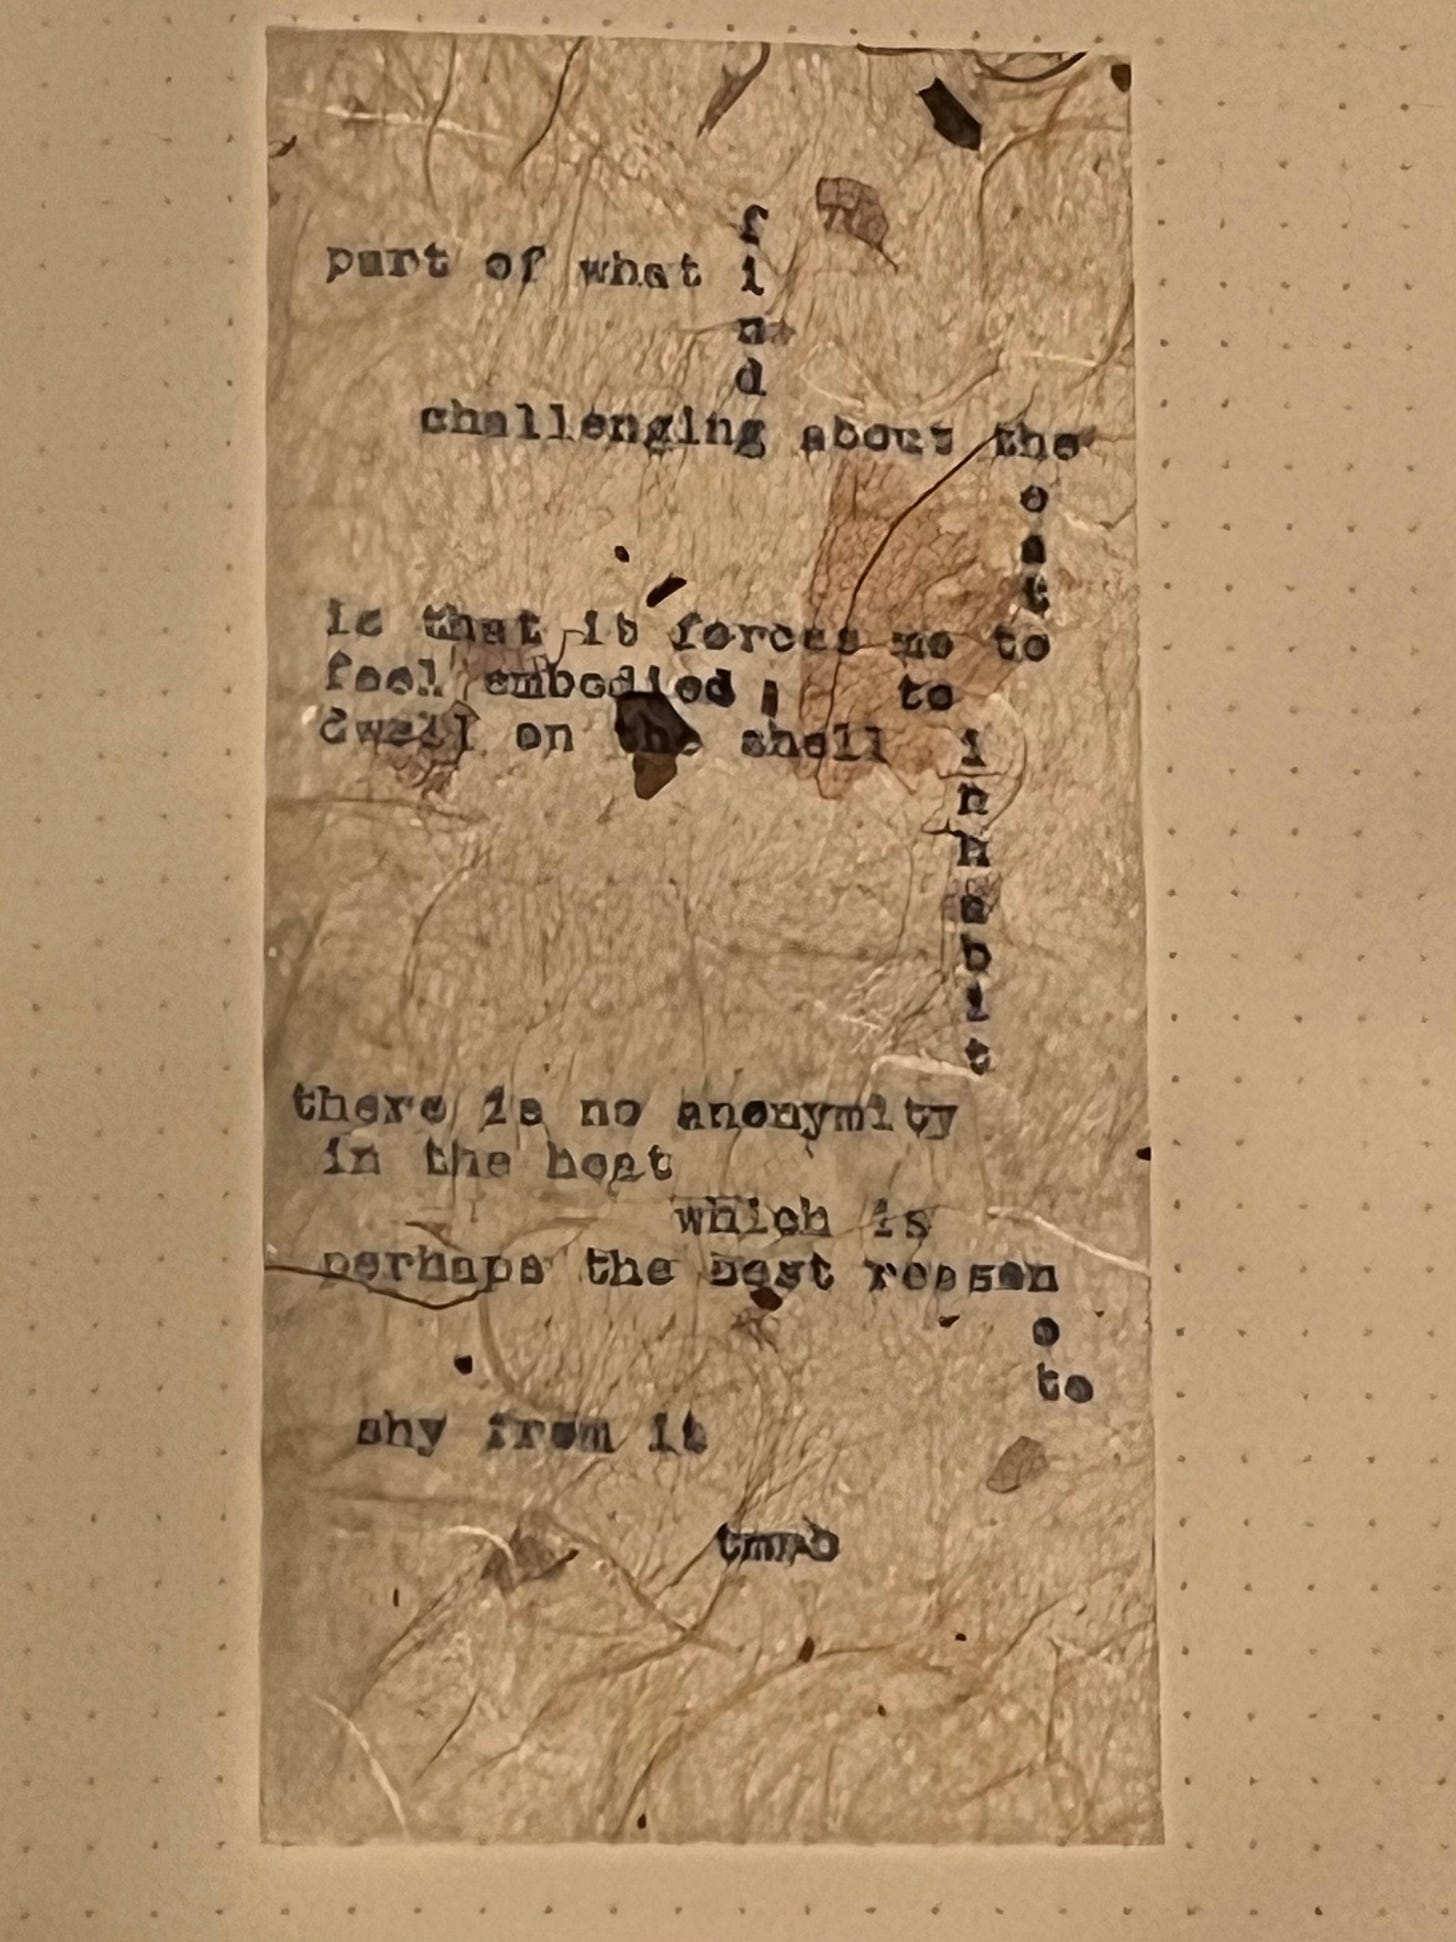 f
part of what i
n
d
challenging about the
e
a
t
is that it forces me to
feel embodied, to
dwell on the shell i
n
h
a
b
i
t
there is no anonymity
in the heat
which is
perhaps the best reason
o
to
shy from it